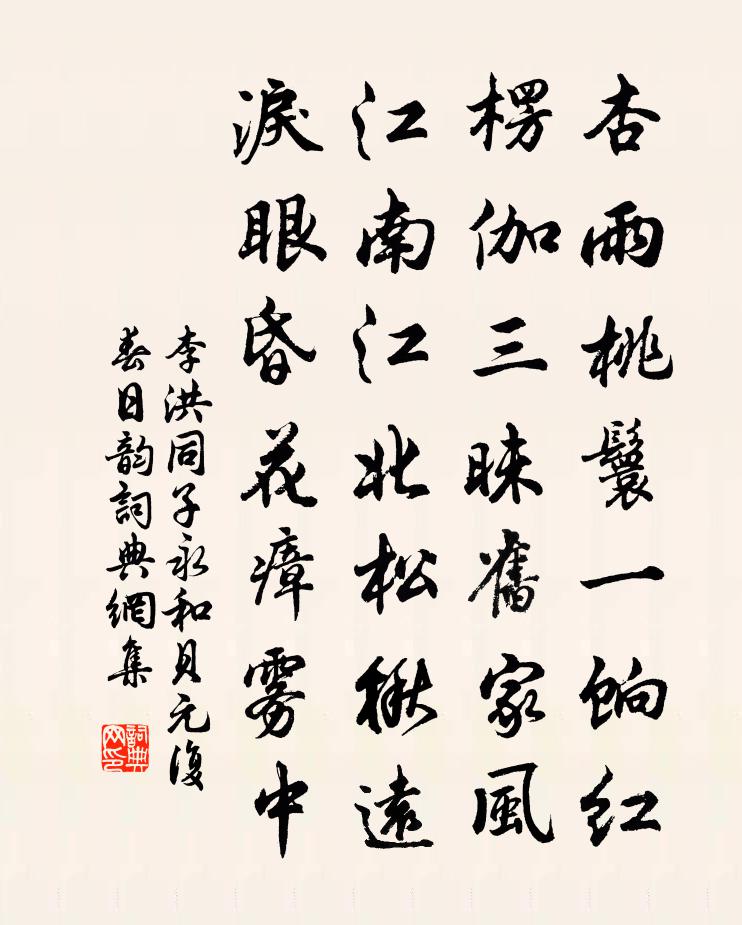 杏雨桃鬟一餉红
楞伽三昧舊家風
江南江北松楸遠
淚眼昏花瘴雾中
李洪同子永和貝元復
春日韵詞典網集
詞典网印